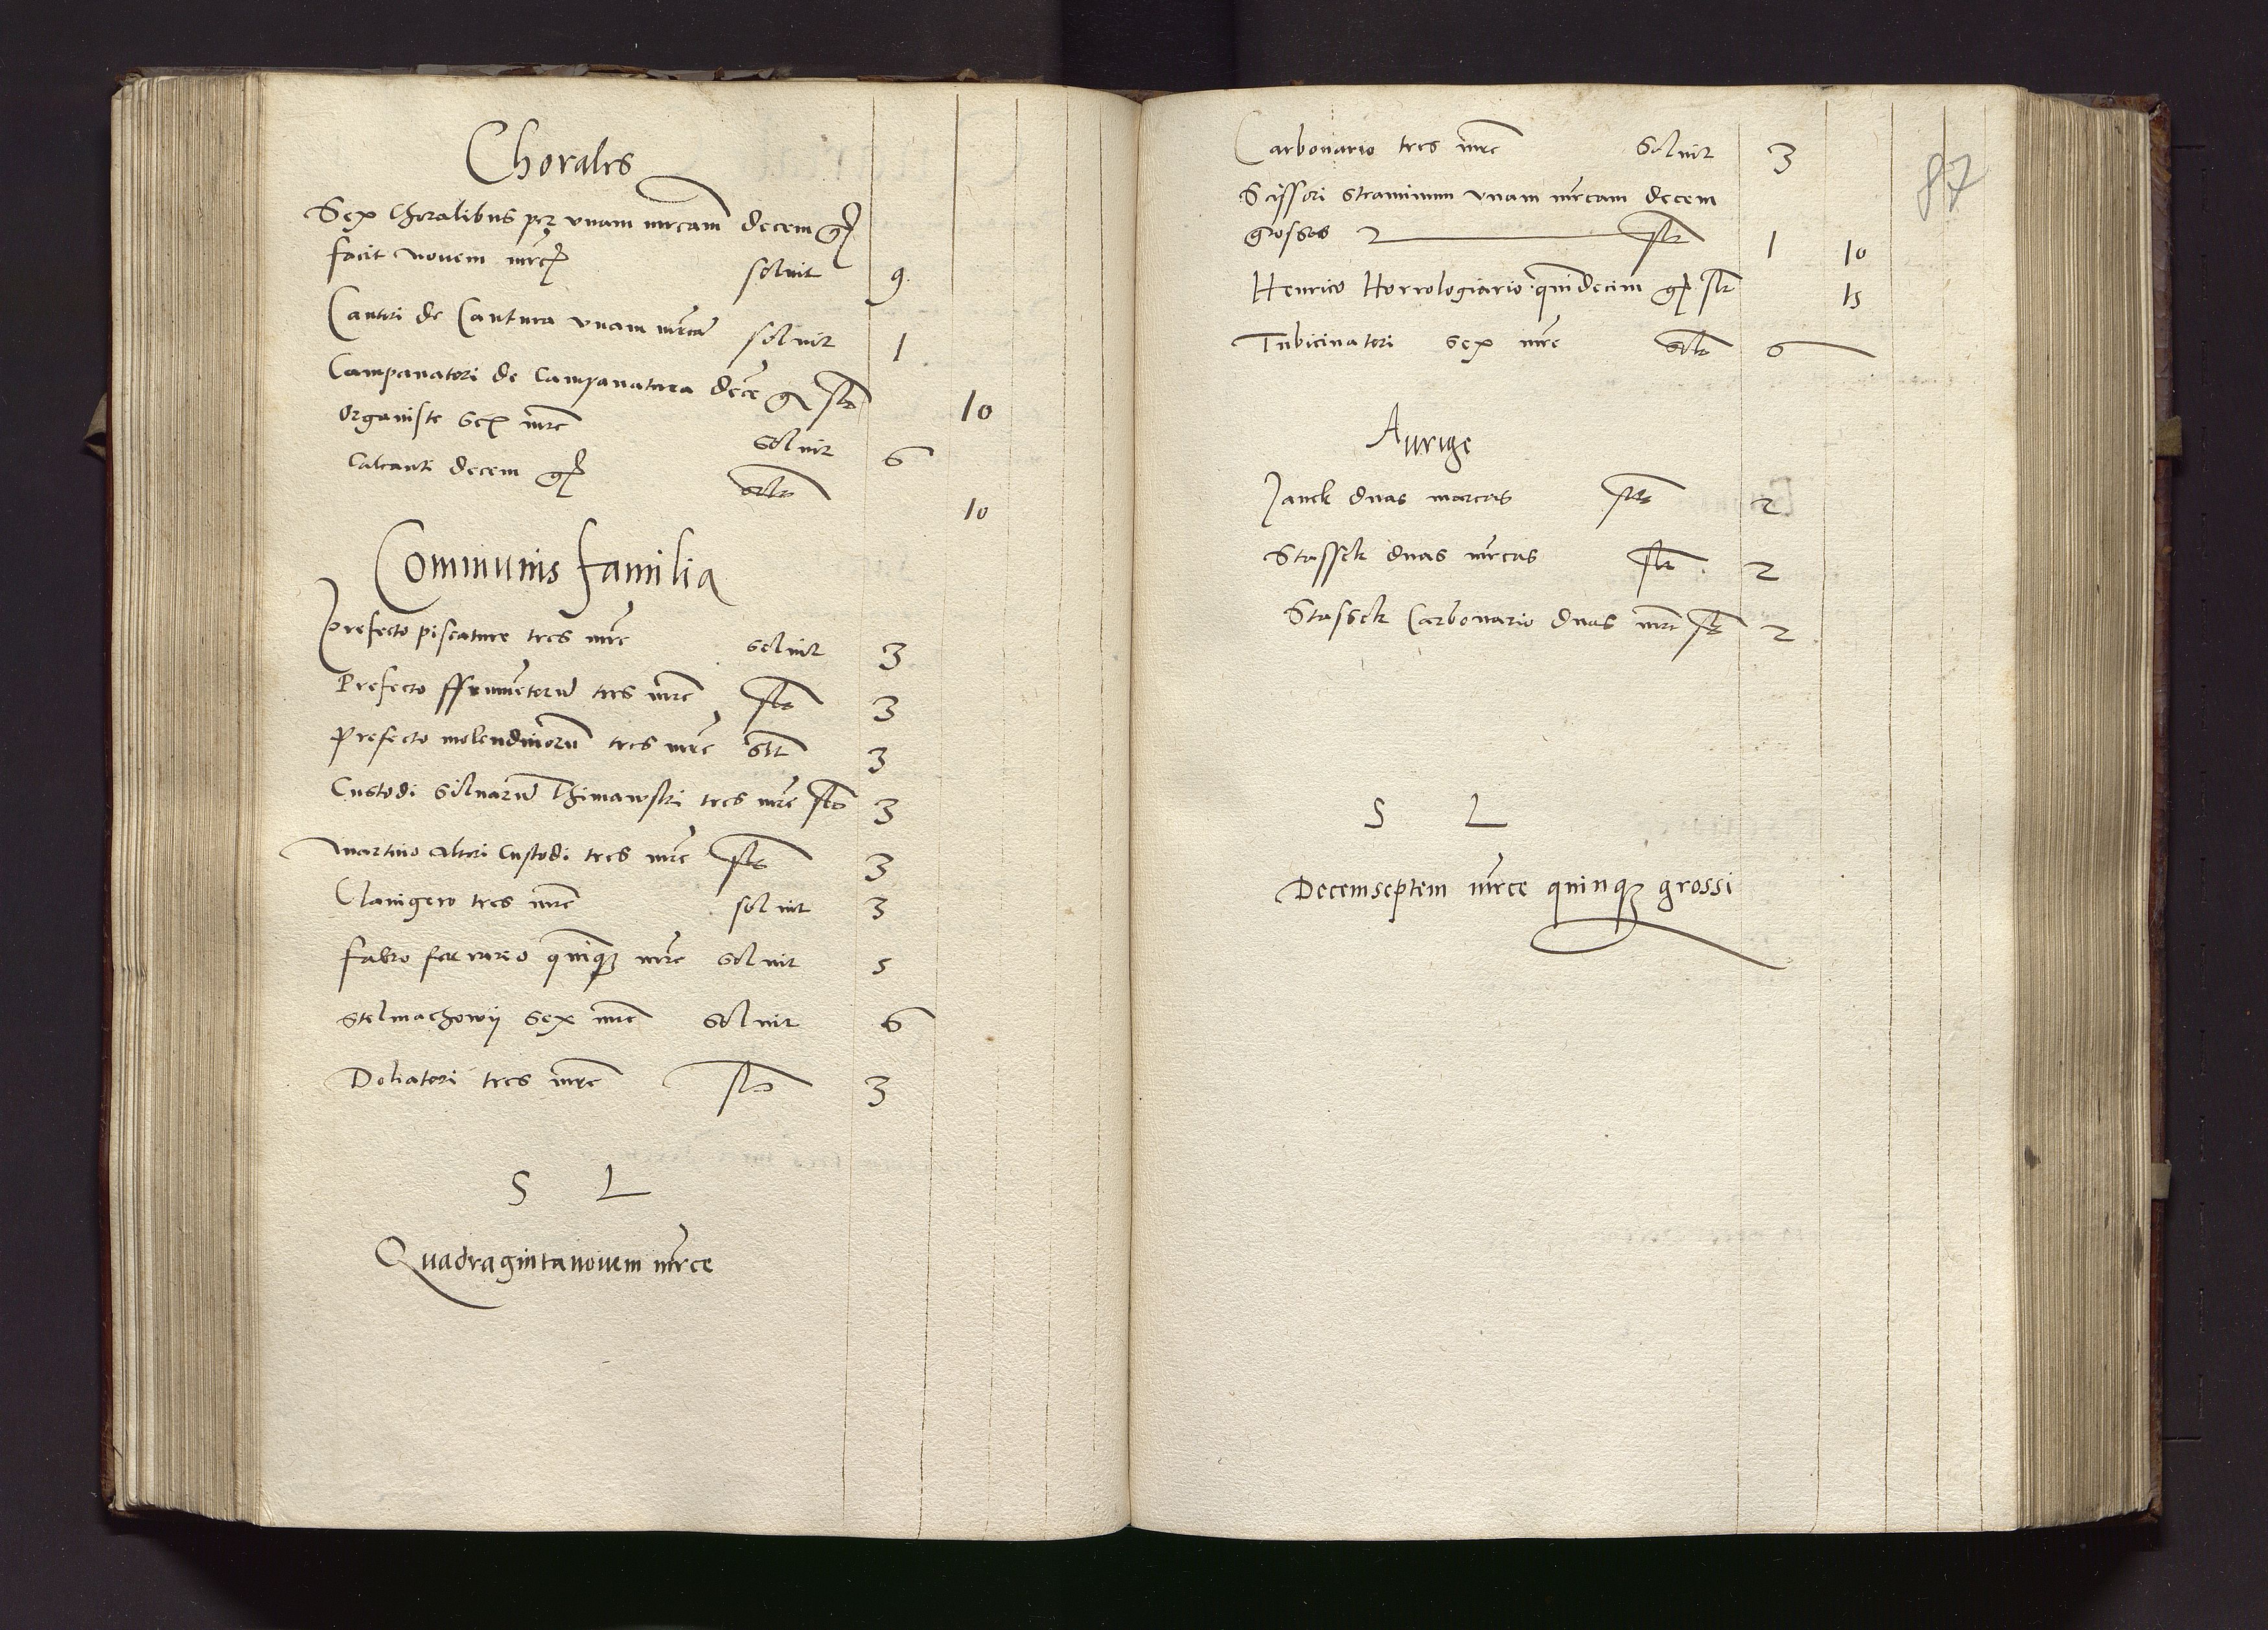 Chorales
Sex Choralibus per vnam mrcam decem gr
facit novem mrc solvit 9
Cantori de Cantura vnam mrcam solvit 1
Campanatori de Campanatura dece gr slt 10
Organiste sex mrc solvit 6
Calcanti decem gr solt 10
Communis familia
Prefecto piscature tres mrc solvit 3
Prefecto ffrumetoru tres mrc slt 3
Prefecto molendinoru tres mrc slt 3
Custodi silvaru Thimawski tres mrc slt 3
Martino alteri Custodi tres mrc slt 3
Clavigero tres mrc solvit 3
fabro ferrario quinq mrc solvit 5
Stelmachowij sex mrc solvit 6
Doliatori tres mrc slt 3
S L
Quadragintanovem mrce
87
Carbonario tres mrc solvit 3
Scissori straminum vnam mrcam decem
grossos 2 slt 1 10
Henrico Horrologiario quindecim gr slt 15
Tubicinatori sex mrc solt 6
Aurige
Janck duas marcas slt 2
Stassek duas mrcas slt 2
Stassek Carbonario duas mrc slt 2
S L
Decemseptem mrce quinq grossi